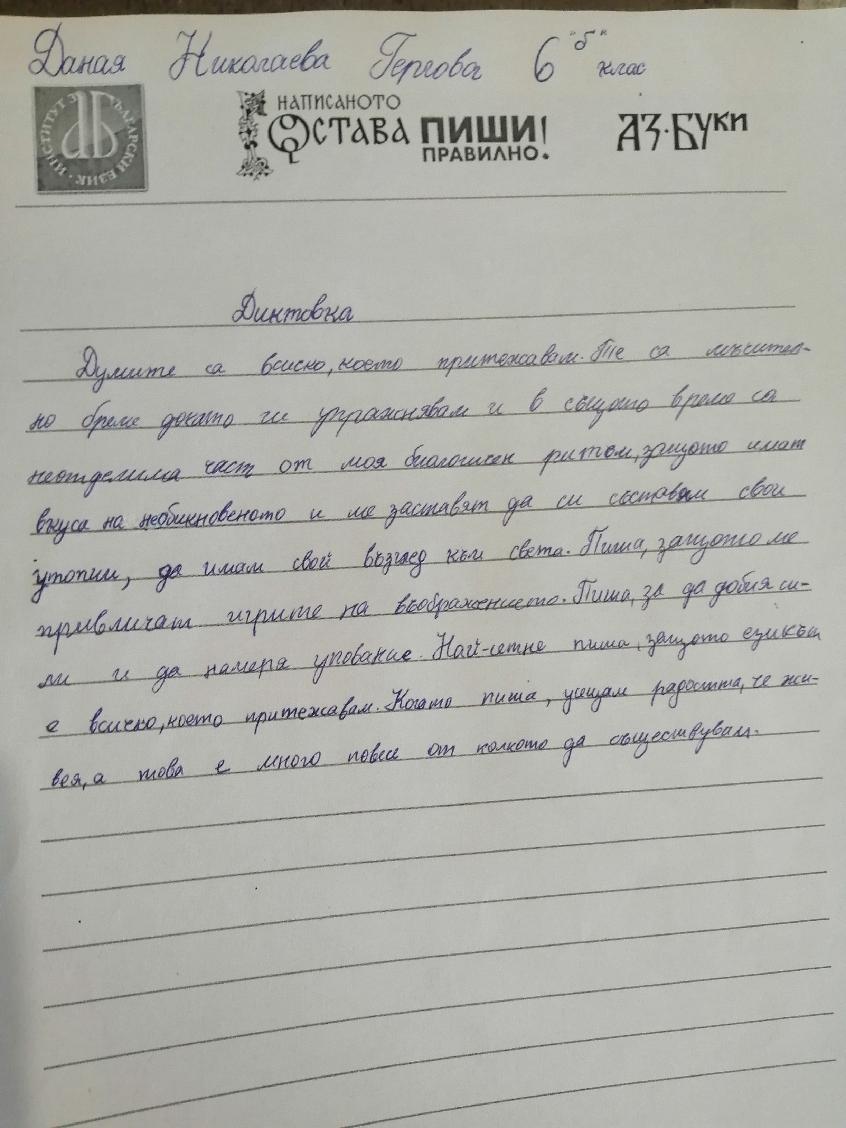 Даная Николаева Гергова 6 "б" клас
ИНСТИТУТ ЗА БЪЛГАРСКИ ЕЗИК
НАПИСАНОТО
ОСТАВА ПИШИ!
ПРАВИЛНО.
АЗ·БУКИ
Диктовка
Думите са всичко, което притежавам. Те са мъчител-
но бреме докато ги упражнявам и в същото време са
неотделима част от моя биологичен ритъм, защото имат
вкуса на необикновеното и ме заставят да си съставям свои
утопии, да имам свой възглед към света. Пиша, защото ме
привличат игрите на въображението. Пиша, за да добия си-
ли и да намеря упование. Най-сетне пиша, защото езикът
е всичко, което притежавам. Когато пиша, усещам радостта, че жи-
вея, а това е много повече от колкото да съществувам.